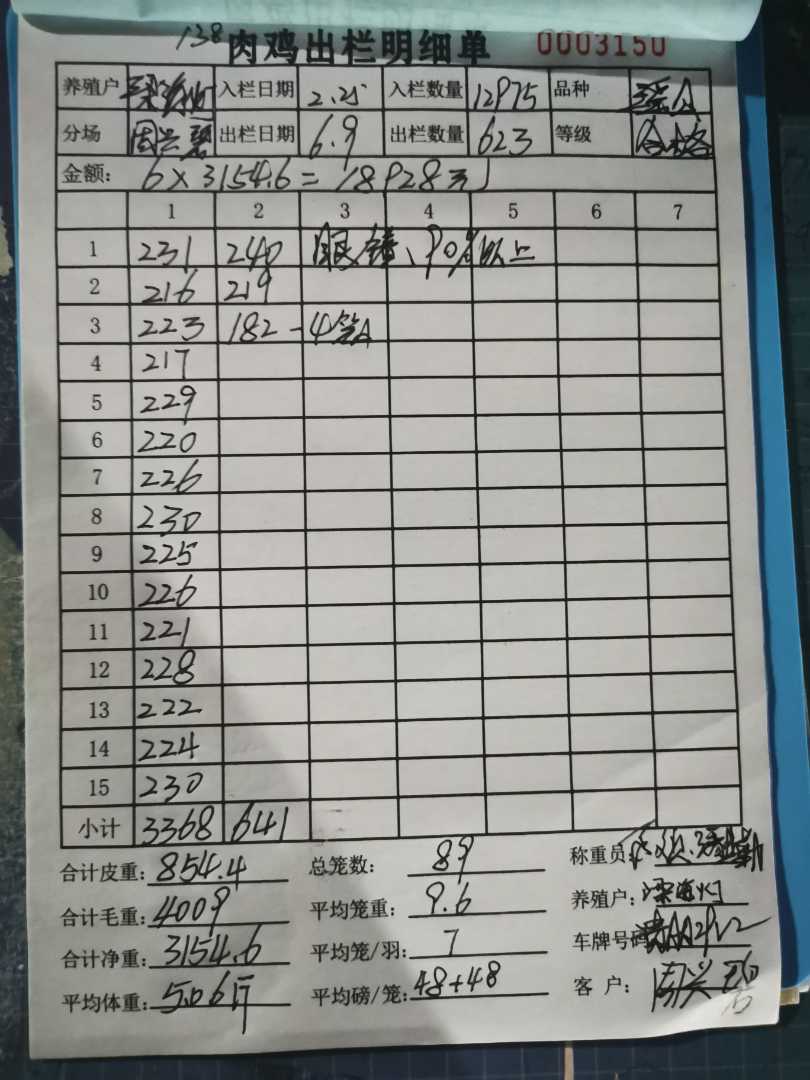 138 肉鸡出栏明细单 0003150
养殖户 入栏日期 2.25 入栏数量 12975 品种
分场 周兴碧 出栏日期 6.9 出栏数量 623 等级 合格
金额: 6×3154.6=18928元
1 2 3 4 5 6 7
1 231 240 眼镜、90%以上
2 216 219
3 223 182 - 4笼
4 217
5 229
6 220
7 226
8 230
9 225
10 226
11 221
12 228
13 222
14 224
15 230
小计 3368 641
合计皮重: 854.4 总笼数: 89 称重员:
合计毛重: 4009 平均笼重: 9.6 养殖户:
合计净重: 3154.6 平均笼/羽: 7 车牌号码
平均体重: 5.06斤 平均磅/笼: 48+48 客 户: 周兴碧